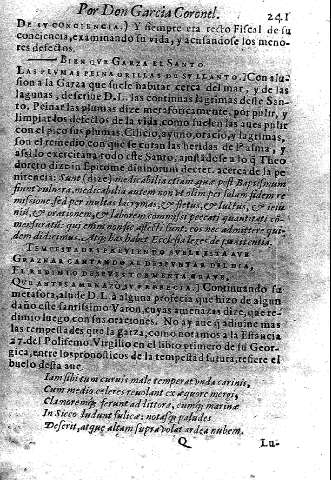 Por Don Garcia Coronel. 241
DE SV CONCIENCIA.) Y siempre era recto Fiscal de su
conciencia, examinando su vida, y acusandose los meno-
res defectos.
BIEN QVE GARZA EL SANTO
LAS PLVMAS PEINA ORILLAS DE SV LLANTO.] Con alu-
sion a la Garza que suele habitar cerca del mar, y de las
lagunas, descriue D. L. las continuas lagrimas deste San-
to, Peinar las plumas dize metaforicamente, por pulir, y
limpiar los defectos de la vida, como suelen las aues pulir
con el pico sus plumas. Cilicio, ayuno, oracio, y lagrimas,
son el remedio con que se curan las heridas del alma, y
assi lo exercitaua todo este Santo, ajustandose a lo q̃ Theo
doreto dize in Epitome diuinorum decret. acerca de la pe
nitencia: Sunt (dize) medicabilia etiam quæ post Baptismum
fiunt vulnera, medicabilia autem non vt olim per solam fidem re
missione sed per multas lacrymas, & fletus, & luctus, & ieiu
nia, & orationem, & laborem commissi peccati quantitati cõ-
mensuratũ: qui enim non sic affecti sunt, eos nec admittere qui-
dem didicimus. Atqui habet Ecclesia leges de pœnitentia.
GRAZNAR CANTANDO AL DESPVNTAR DEL DIA,
QVANTAS AMENAZÒ SV PROFECIA.] Continuando su
metafora, alude D. L. à alguna profecia que hizo de algun
daño este santissimo Varon, cuyas amenazas dize, que re-
dimio luego con sus oraciones. No ay aue q̃ adiuine mas
las tempestades que la garza, como notamos a la Estancia
27. del Polifemo. Virgilio en el libro primero de su Geor-
gica, entre los pronosticos de la tempestad futura, refiere el
buelo desta aue
Iam sibi tum curuis male temperat vnda carinis,
Cum medio celeres reuolant ex æquore mergi,
Clamoremq; ferunt ad littora, cumq; marinæ
In sicco ludunt fulicæ: notasq; paludes
Deserit, atque altam supra volat ardea nubem.
Q Lu-